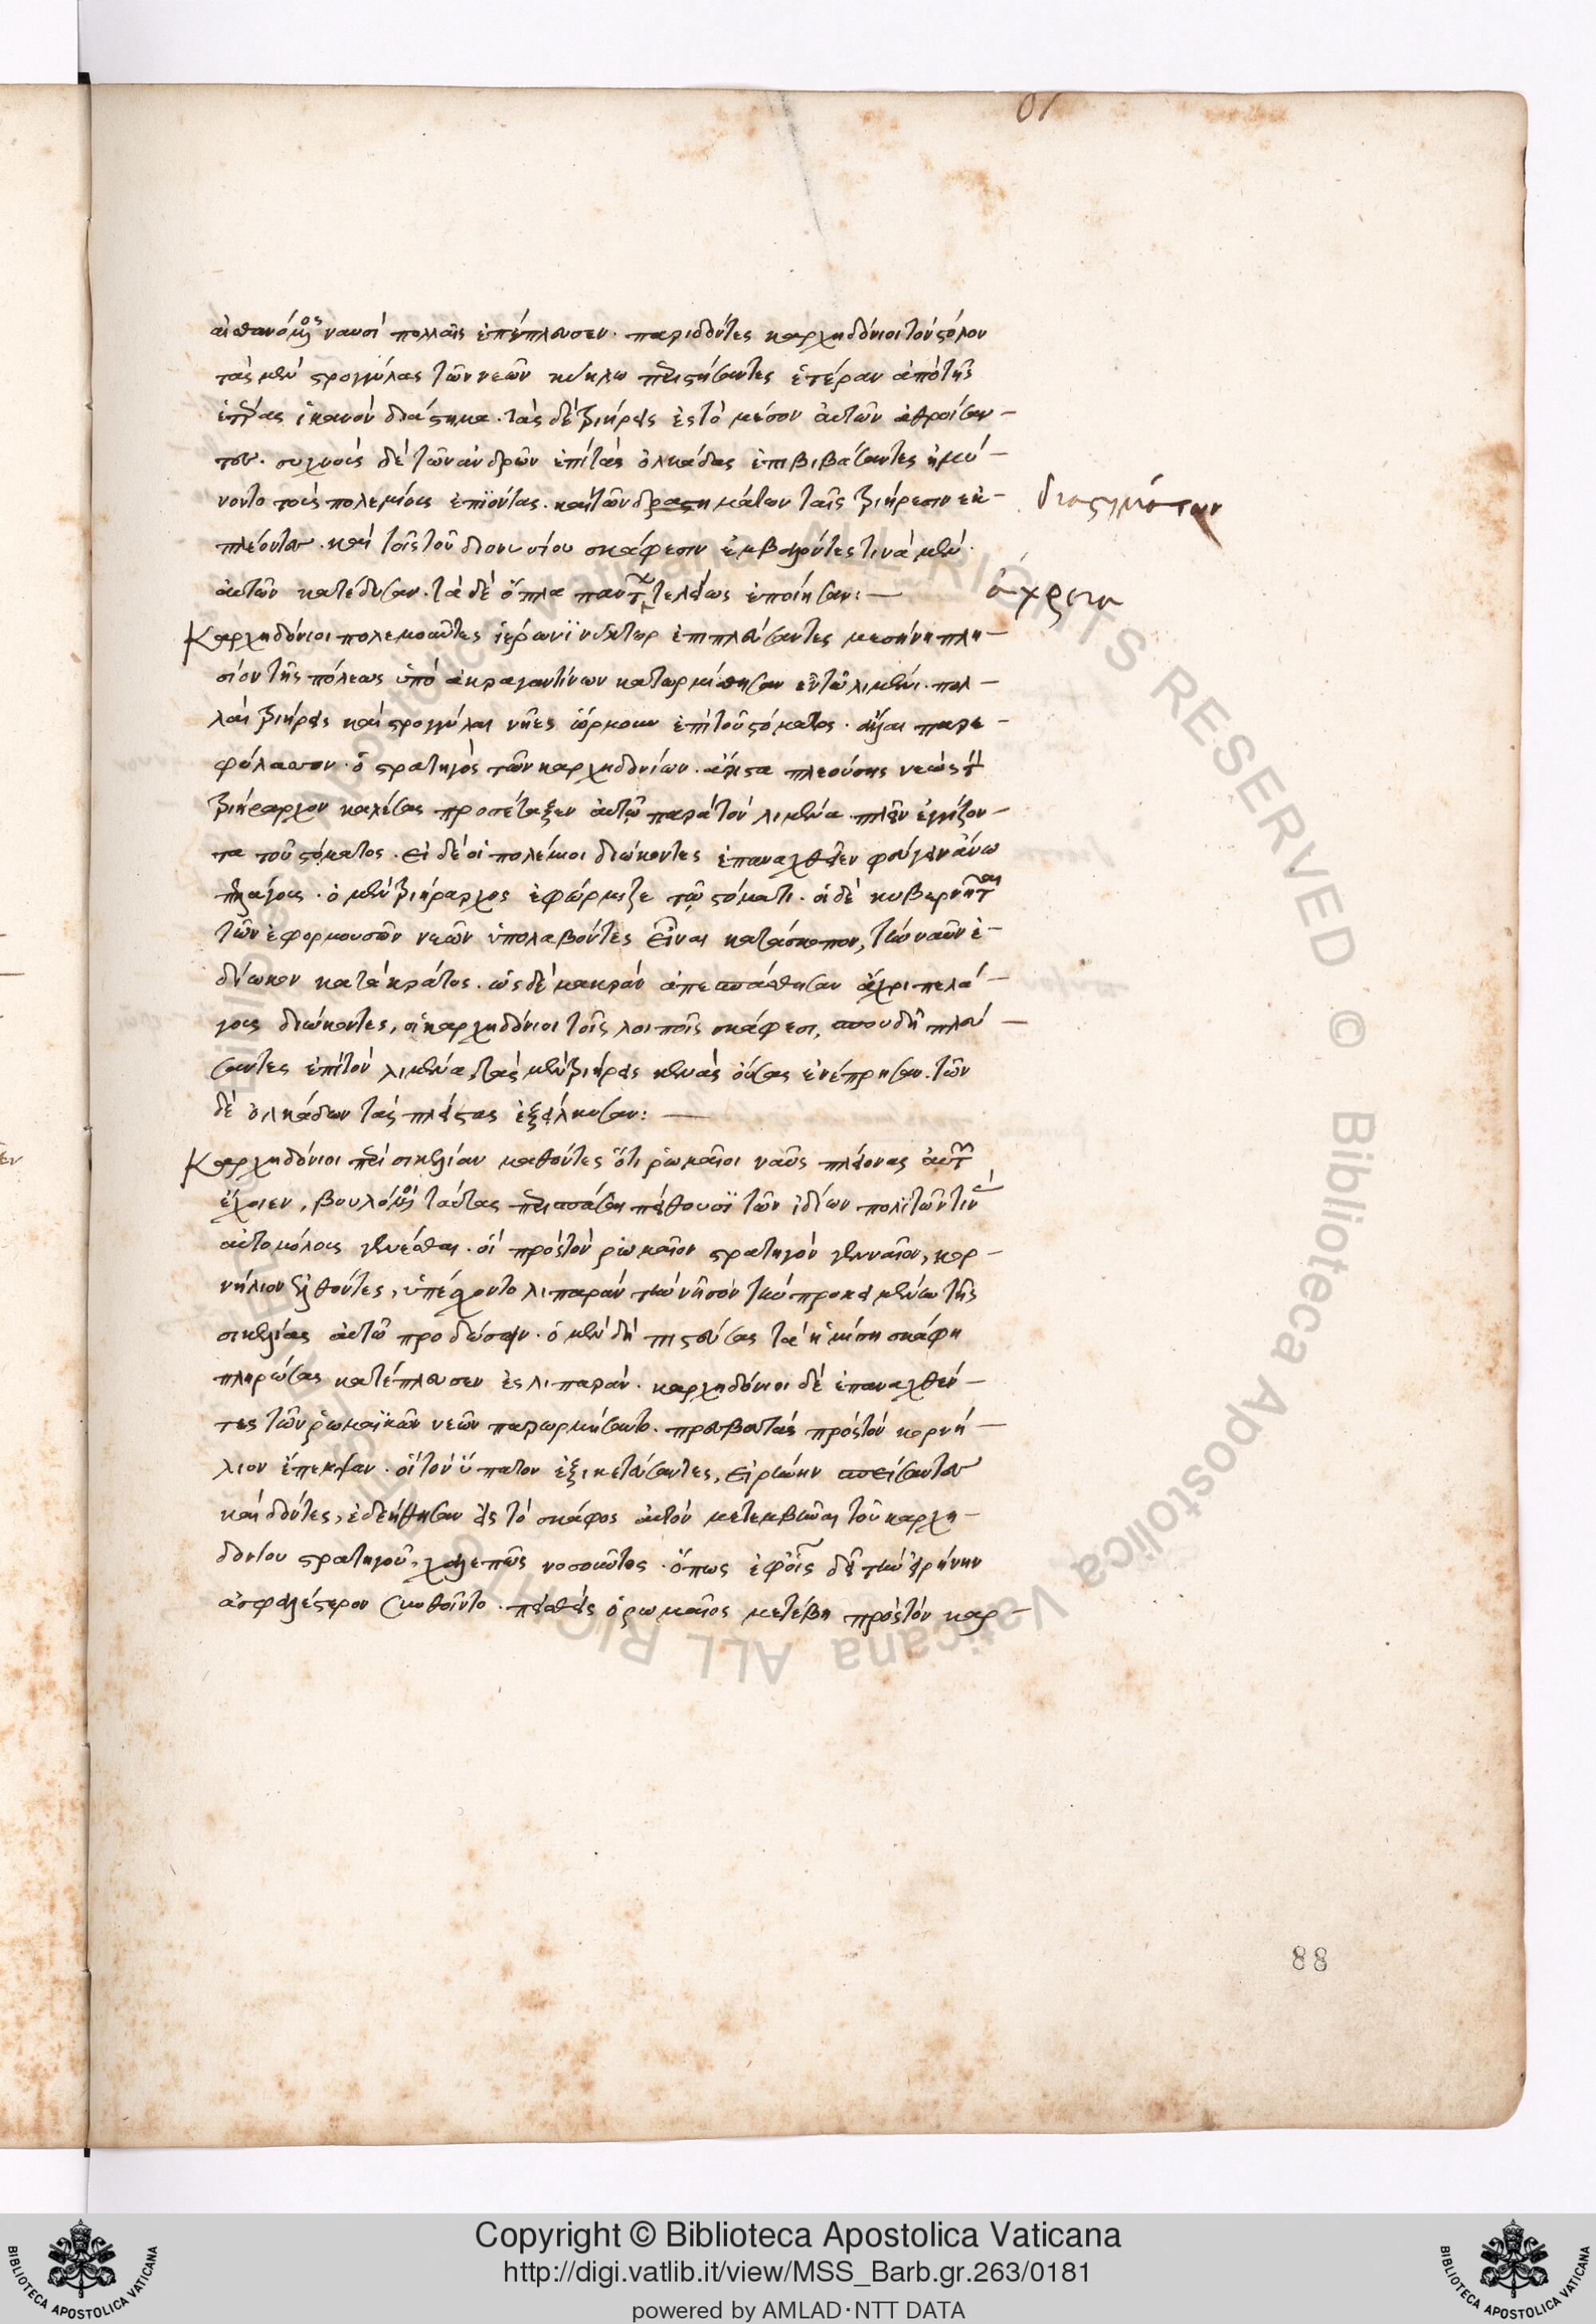 αἰσθανόμενος ναυσὶ πολλαῖς ἐπέπλευσεν. παριδόντες καρχηδόνιοι τὸν στόλον
τὰς μὲν στρογγύλας τῶν νεῶν κύκλω περιστήσαντες ἑτέραν ἀπὸ τῆς
ἑτέρας ἱκανὸν διάστημα. τὰς δὲ τριήρεις ἐς τὸ μέσον αὐτῶν ἀθροίσαν-
τες. συχνοὺς δὲ τῶν ἀνδρῶν ἐπὶ τὰς ὁλκάδας ἐπιβιβάσαντες ἠμύ-
νοντο τοὺς πολεμίους ἐπιόντας. καὶ τῶν δραστημάτων ταῖς τριήρεσιν ἐκ-
πλέοντες. καὶ τοῖς τοῦ διονυσίου σκάφεσιν ἐμβαλόντες τινὰ μὲν
αὐτῶν κατέδυσαν. τὰ δὲ ὅπλα παντελείως ἐποίησαν:—
Καρχηδόνιοι πολεμοῦντες ἱέρωνι νύκτωρ ἐπιπλεύσαντες μεσήνη πλη-
σίον τῆς πόλεως ὑπὸ ἀκραγαντίνων κατωρμίσθησαν ἐν τῶ λιμένι. πολ-
λαὶ τριήρεις καὶ στρογγύλαι νῆες ὥρμουν ἐπὶ τοῦ στόματος. ἄλλαι παρε-
φύλασσον. ὁ στρατηγὸς τῶν καρχηδονίων. ἄριστα πλεούσης νεὼς τὸν
τριήραρχον καλέσας προσέταξεν αὐτῶ παρὰ τὸν λιμένα πλεῖν ἐγγίζον-
τα τοῦ στόματος. εἰ δὲ οἱ πολέμιοι διώκοντες ἐπαναχθεῖεν φεύγειν ἄνω
πελάγους. ὁ μὲν τριήραρχος ἐφώρμιζε τῶ στόματι. οἱ δὲ κυβερνῆται
τῶν ἐφορμουσῶν νεῶν ὑπολαβόντες εἶναι κατάσκοπον, τὴν ναῦν ἐ-
δίωκον κατὰ κράτος. ὡς δὲ μακρὰν ἀπεσπάσθησαν ἄχρι πελά-
γους διώκοντες, οἱ καρχηδόνιοι τοῖς λοιποῖς σκάφεσι, σπουδῆ πλεύ-
σαντες ἐπὶ τὸν λιμένα, τὰς μὲν τριήρεις κενὰς οὔσας ἐνέπρησαν. τῶν
δὲ ὁλκάδων τὰς πλείστας ἐξείλκυσαν:—
Καρχηδόνιοι περὶ σικελίαν μαθόντες ὅτι ῥωμαῖοι ναῦς πλείονας αὐτῶν
ἔχοιεν, βουλόμενοι ταύτας περισπάσαι πείθουσι τῶν ἰδίων πολιτῶν τινὰς
αὐτομόλους γενέσθαι. οἱ πρὸς τὸν ῥωμαῖον στρατηγὸν γενναῖον, κορ-
νήλιον ἐλθόντες, ὑπέσχοντο λιπαρὰν τὴν νῆσον τὴν προκειμένην τῆς
σικελίας αὐτῶ προδώσειν. ὁ μὲν δὴ πιστεύσας τὰ ἡμίση σκάφη
πληρώσας κατέπλευσεν ἐς λιπαράν. καρχηδόνιοι δὲ ἐπαναχθέν-
τες τῶν ῥωμαϊκῶν νεῶν παρωρμήσαντο. πρεσβευτὰς πρὸς τὸν κορνή-
λιον ἔπεμψαν. οἳ τὸν ὕπατον ἐξικετεύσαντες, εἰρήνην σπείσαντες
καὶ δόντες, ἐδεήθησαν εἰς τὸ σκάφος αὐτὸν μετεμβῆναι τοῦ καρχη-
δονίου στρατηγοῦ, χαλεπῶς νοσοῦντος. ὅπως ἐφ' οἷς δεῖ τὴν εἰρήνην
ἀσφαλέστερον συνθοῖντο. πεισθεὶς ὁ ῥωμαῖος μετέβη πρὸς τὸν καρ-
διαστημάτων
ἄχρηστα
88
Copyright © Biblioteca Apostolica Vaticana
http://digi.vatlib.it/view/MSS_Barb.gr.263/0181
powered by AMLAD·NTT DATA
BIBLIOTECA APOSTOLICA VATICANA
BIBLIOTECA APOSTOLICA VATICANA